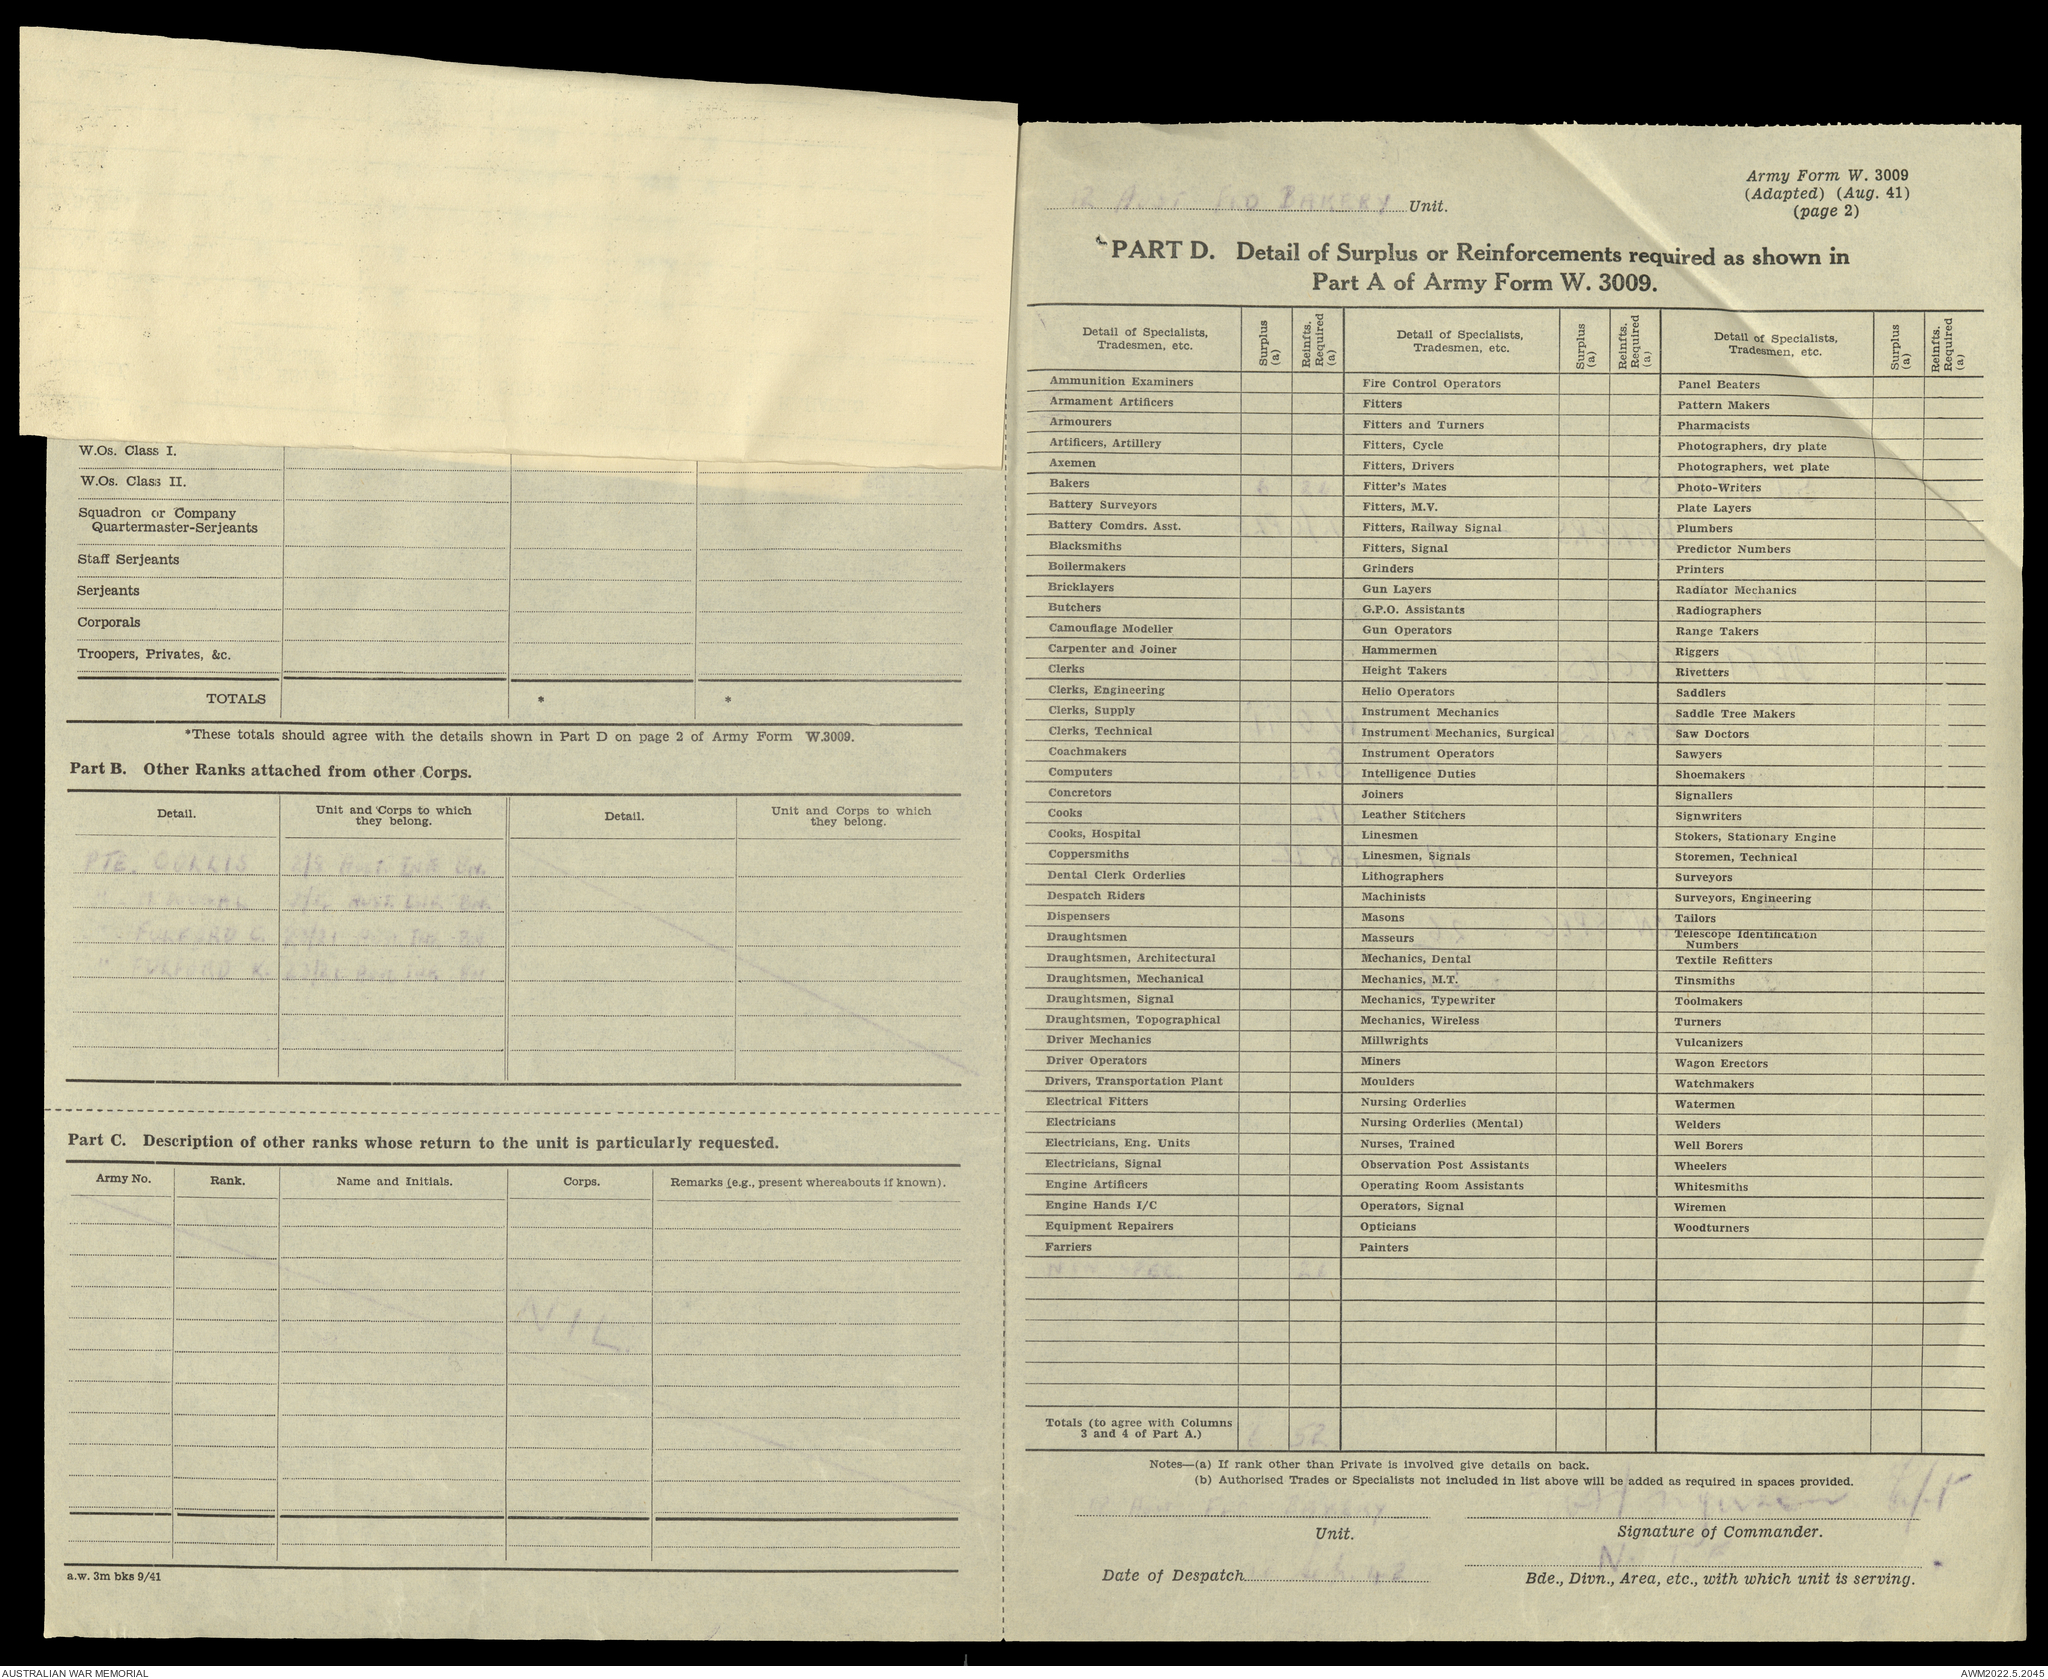 W.Os. Class I.
W.Os. Class II.
Squadron or Company
Quartermaster-Serjeants
Staff Serjeants
Serjeants
Corporals
Troopers, Privates, &c.
TOTALS * *
*These totals should agree with the details shown in Part D on page 2 of Army Form W.3009.
Part B. Other Ranks attached from other Corps.
Detail. Unit and Corps to which they belong. Detail. Unit and Corps to which they belong.
PTE. CURRIS 2/8 AUST. INF. BN.
" AUST. INF. BN.
FULFORD C. AUST INF. BN
" FULFORD K. AUST INF. BN
Part C. Description of other ranks whose return to the unit is particularly requested.
Army No. Rank. Name and Initials. Corps. Remarks (e.g., present whereabouts if known).
NIL.
a.w. 3m bks 9/41
Army Form W. 3009
(Adapted) (Aug. 41)
(page 2)
12 AUST FLD BAKERY Unit.
PART D. Detail of Surplus or Reinforcements required as shown in
Part A of Army Form W. 3009.
Detail of Specialists, Tradesmen, etc. Surplus (a) Reinfts. Required (a) Detail of Specialists, Tradesmen, etc. Surplus (a) Reinfts. Required (a) Detail of Specialists, Tradesmen, etc. Surplus (a) Reinfts. Required (a)
Ammunition Examiners Fire Control Operators Panel Beaters
Armament Artificers Fitters Pattern Makers
Armourers Fitters and Turners Pharmacists
Artificers, Artillery Fitters, Cycle Photographers, dry plate
Axemen Fitters, Drivers Photographers, wet plate
Bakers 6 Fitter's Mates Photo-Writers
Battery Surveyors Fitters, M.V. Plate Layers
Battery Comdrs. Asst. Fitters, Railway Signal Plumbers
Blacksmiths Fitters, Signal Predictor Numbers
Boilermakers Grinders Printers
Bricklayers Gun Layers Radiator Mechanics
Butchers G.P.O. Assistants Radiographers
Camouflage Modeller Gun Operators Range Takers
Carpenter and Joiner Hammermen Riggers
Clerks Height Takers Rivetters
Clerks, Engineering Helio Operators Saddlers
Clerks, Supply Instrument Mechanics Saddle Tree Makers
Clerks, Technical Instrument Mechanics, Surgical Saw Doctors
Coachmakers Instrument Operators Sawyers
Computers Intelligence Duties Shoemakers
Concretors Joiners Signallers
Cooks Leather Stitchers Signwriters
Cooks, Hospital Linesmen Stokers, Stationary Engine
Coppersmiths Linesmen, Signals Storemen, Technical
Dental Clerk Orderlies Lithographers Surveyors
Despatch Riders Machinists Surveyors, Engineering
Dispensers Masons Tailors
Draughtsmen Masseurs Telescope Identification Numbers
Draughtsmen, Architectural Mechanics, Dental Textile Refitters
Draughtsmen, Mechanical Mechanics, M.T. Tinsmiths
Draughtsmen, Signal Mechanics, Typewriter Toolmakers
Draughtsmen, Topographical Mechanics, Wireless Turners
Driver Mechanics Millwrights Vulcanizers
Driver Operators Miners Wagon Erectors
Drivers, Transportation Plant Moulders Watchmakers
Electrical Fitters Nursing Orderlies Watermen
Electricians Nursing Orderlies (Mental) Welders
Electricians, Eng. Units Nurses, Trained Well Borers
Electricians, Signal Observation Post Assistants Wheelers
Engine Artificers Operating Room Assistants Whitesmiths
Engine Hands I/C Operators, Signal Wiremen
Equipment Repairers Opticians Woodturners
Farriers Painters
NON SPEC. 26
Totals (to agree with Columns
3 and 4 of Part A.) 6 52
Notes—(a) If rank other than Private is involved give details on back.
(b) Authorised Trades or Specialists not included in list above will be added as required in spaces provided.
12 AUST FLD BAKERY Capt
Unit. Signature of Commander.
Date of Despatch 42
Bde., Divn., Area, etc., with which unit is serving.
AUSTRALIAN WAR MEMORIAL AWM2022.5.2045